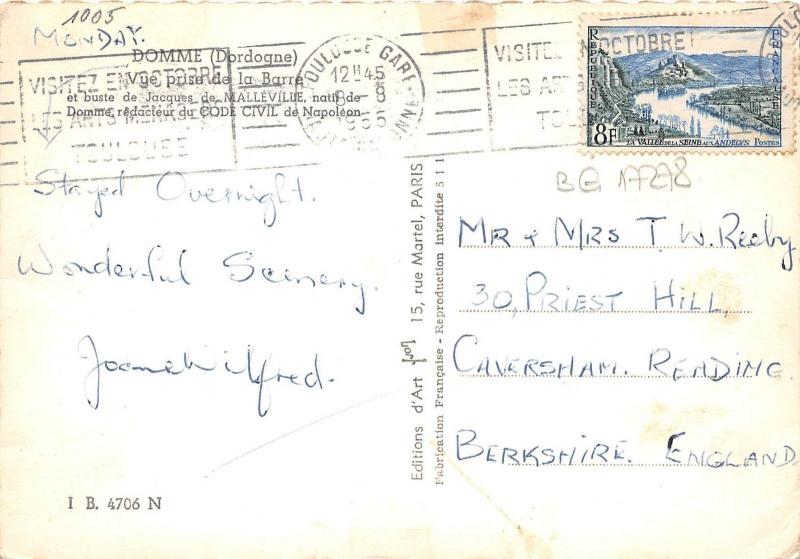 1005
MONDAY.
DOMME (Dordogne)
Vue prise de la Barre
et buste de Jacques de MALLEVILLE, natif de
Domme, rédacteur du CODE CIVIL de Napoléon
VISITEZ EN OCTOBRE
LES ARTS MÉNAGERS
TOULOUSE
TOULOUSE GARE
12H45
8-8
VISITEZ EN OCTOBRE
LES ARTS
TOU
REPUBLIQUE FRANCAISE
8F
LA VALLEE DE LA SEINE AUX ANDELYS POSTES
BG 17278
Stayed Overnight.
Wonderful Scenery.
Joan & Wilfred.
I B. 4706 N
Editions d'Art Yvon 15, rue Martel, PARIS
Fabrication Française - Reproduction Interdite 5 1 1
MR & MRS T. W. Reeby
30, PRIEST HILL,
CAVERSHAM. READING.
BERKSHIRE. ENGLAND